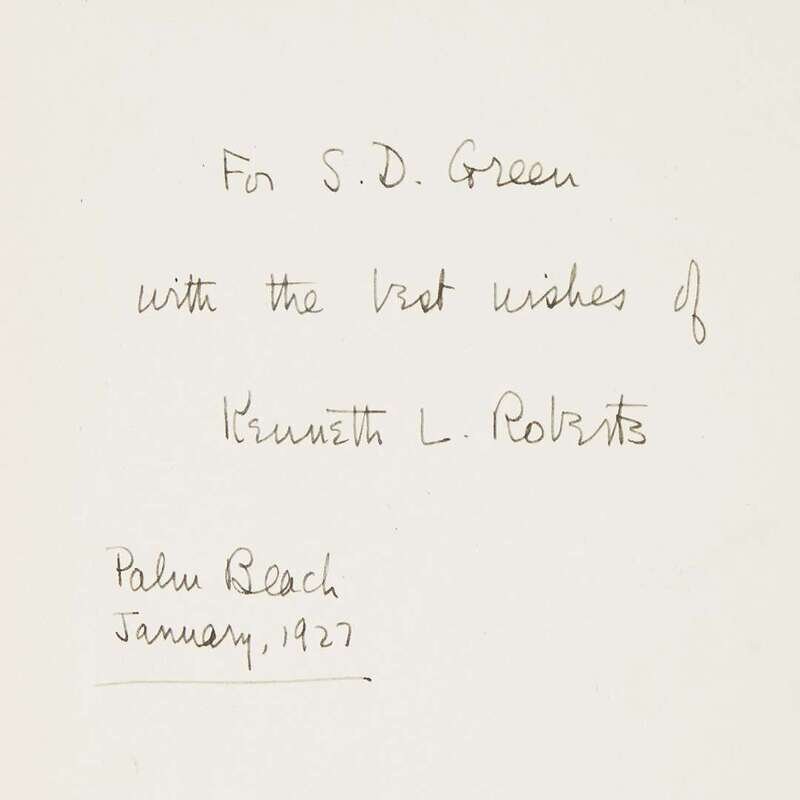 For S. D. Green
with the best wishes of
Kenneth L. Roberts
Palm Beach
January, 1927